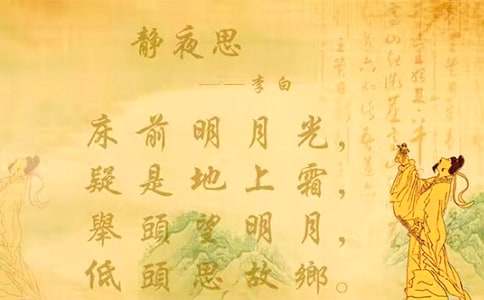 靜夜思
——李白
床前明月光，
疑是地上霜，
舉頭望明月，
低頭思故鄉。